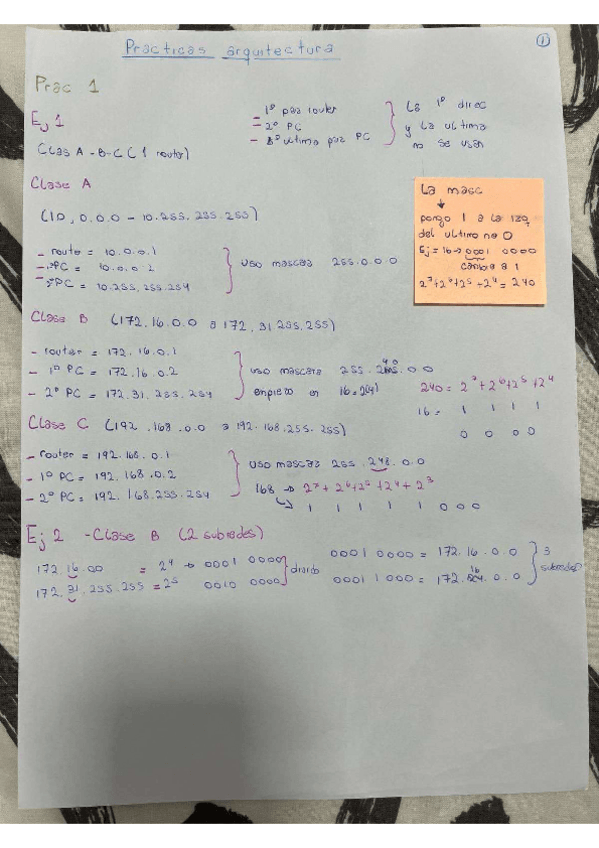 Prácticas arquitectura
1
Prac 1
Ej 1
- 1º para router
= 2º PC
- último para PC
La 1º direc
y la ultima
no se usan
Clas A-B-C (1 router)
Clase A
(10.0.0.0 - 10.255.255.255)
- route = 10.0.0.1
- 1ºPC = 10.0.0.2
- 2ºPC = 10.255.255.254
uso mascara 255.0.0.0
La masc
pongo 1 a la izq
del ultimo no 0
Ej = 16 → 0001 0000
cambia a 1
2⁷+2⁶+2⁵+2⁴ = 240
Clase B (172.16.0.0 a 172.31.255.255)
- router = 172.16.0.1
- 1º PC = 172.16.0.2
- 2º PC = 172.31.255.254
uso mascara 255.240.0.0
empiezo en 16=2(4)
240 = 2⁷+2⁶+2⁵+2⁴
16 = 1 1 1 1
0 0 0 0
Clase C (192.168.0.0 a 192.168.255.255)
- router = 192.168.0.1
- 1º PC = 192.168.0.2
- 2º PC = 192.168.255.254
uso mascara 255.248.0.0
168 → 2⁷+2⁶+2⁵+2⁴+2³
1 1 1 1 1 0 0 0
Ej 2 - Clase B (2 subredes)
172.16.00 = 2⁴ → 0001 0000
172.31.255.255 = 2⁵ 0010 0000
divido
0001 0000 = 172.16.0.0
0001 1000 = 172.16.0.0
3 subredes